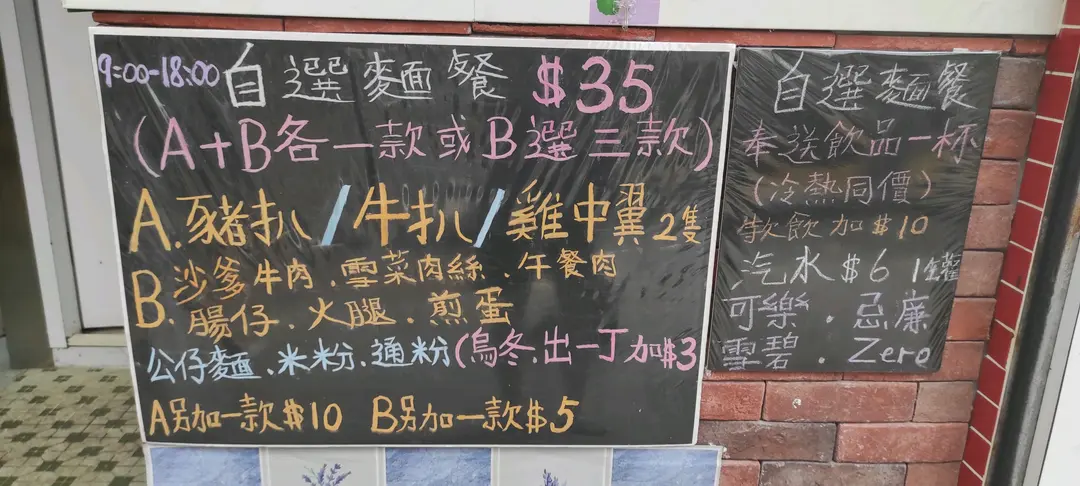 9:00-18:00 自選麵餐 $35
(A+B各一款或B選三款)
A.豬扒/牛扒/雞中翼2隻
B.沙爹牛肉.雪菜肉絲.午餐肉
腸仔.火腿.煎蛋
公仔麵.米粉.通粉(烏冬.出一丁加$3
A另加一款$10 B另加一款$5
自選麵餐
奉送飲品一杯
(冷熱同價)
軟飲加$10
汽水$6 1罐
可樂.忌廉
雪碧.Zero